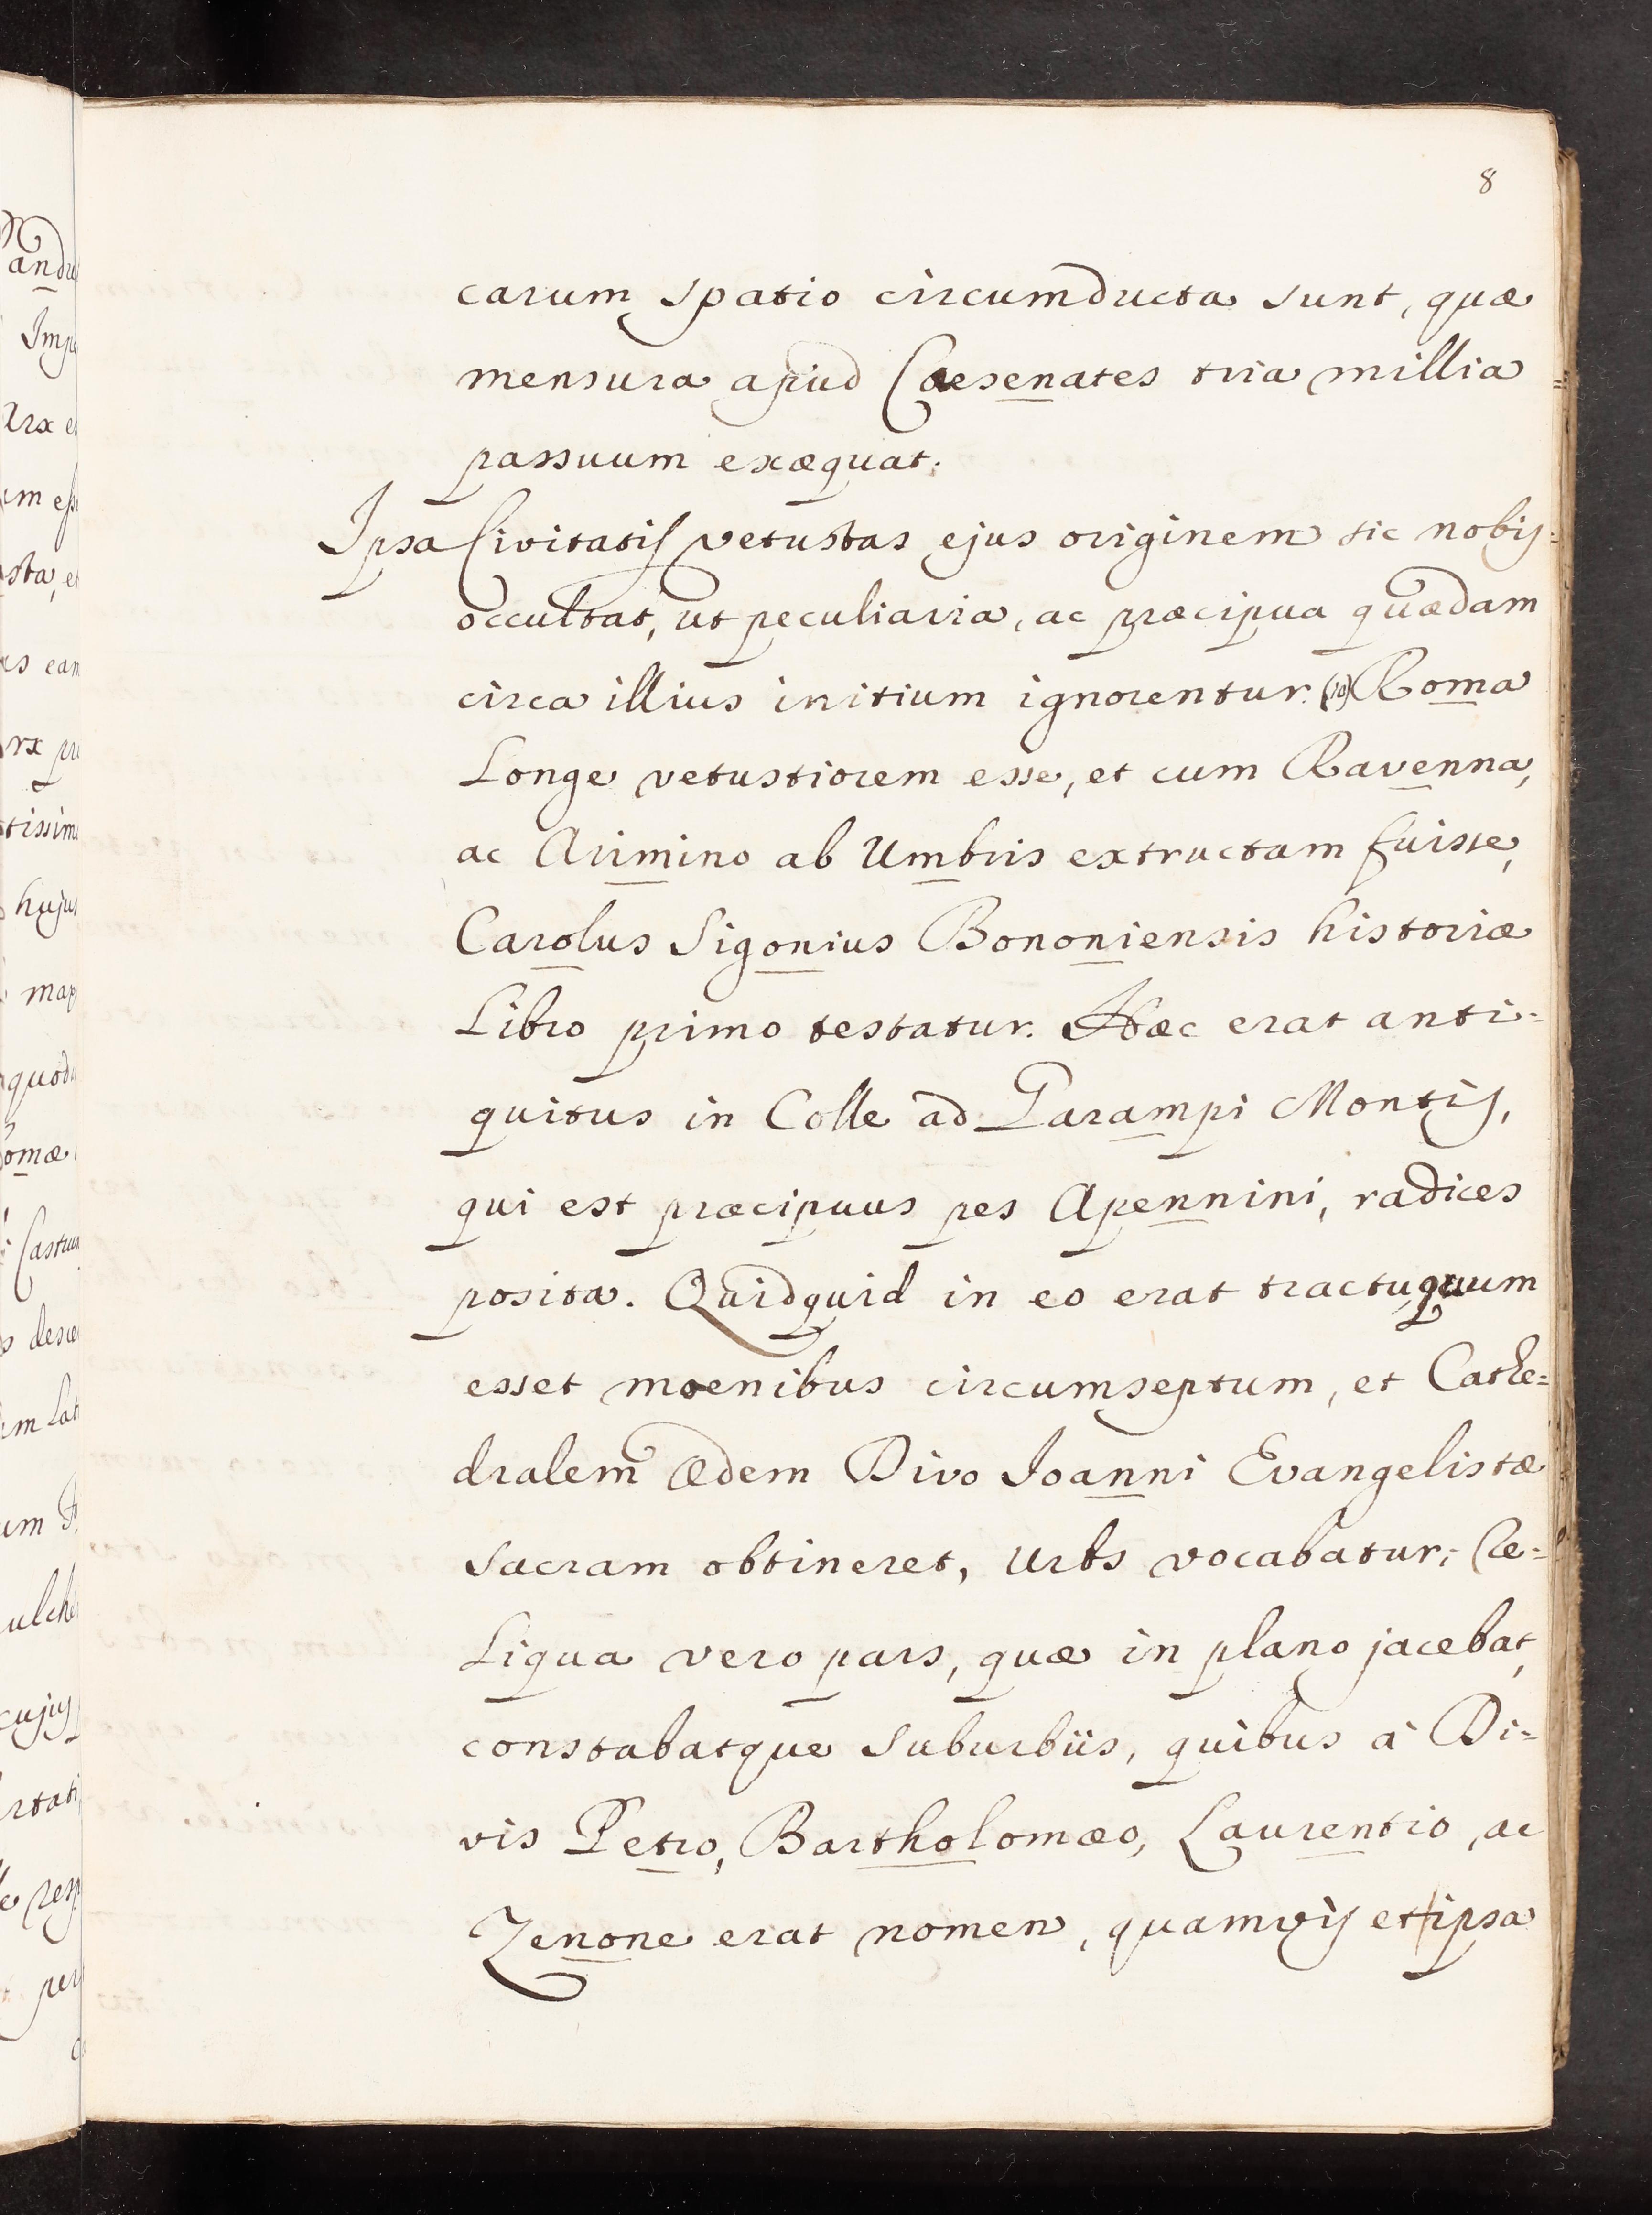 8
carum spatio circumducta sunt, quæ
mensura apud Caesenates tria millia
passuum exæquat.
Ipsa Civitatis vetustas ejus originem sic nobis
occultat, ut peculiaria, ac præcipua quædam
circa illius initium ignorentur. (10) Roma
Longe vetustiorem esse, et cum Ravenna,
ac Arimino ab Umbris extructam fuisse,
Carolus Sigonius Bononiensis historiæ
Libro primo testatur. Hæc erat anti=
quitus in Colle ad Garampi Montis,
qui est præcipuus pes Apennini, radices
posita. Quidquid in eo erat tractu, quum
esset moenibus circumseptum, et Cathe=
dralem ædem Divo Joanni Evangelistæ
sacram obtineret, Urbs vocabatur; Re=
Liqua vero pars, quæ in plano jacebat,
constabatque suburbiis, quibus à Di=
vis Petro, Bartholomæo, Laurentio, ac
Zenone erat nomen, quamvis et ipsa